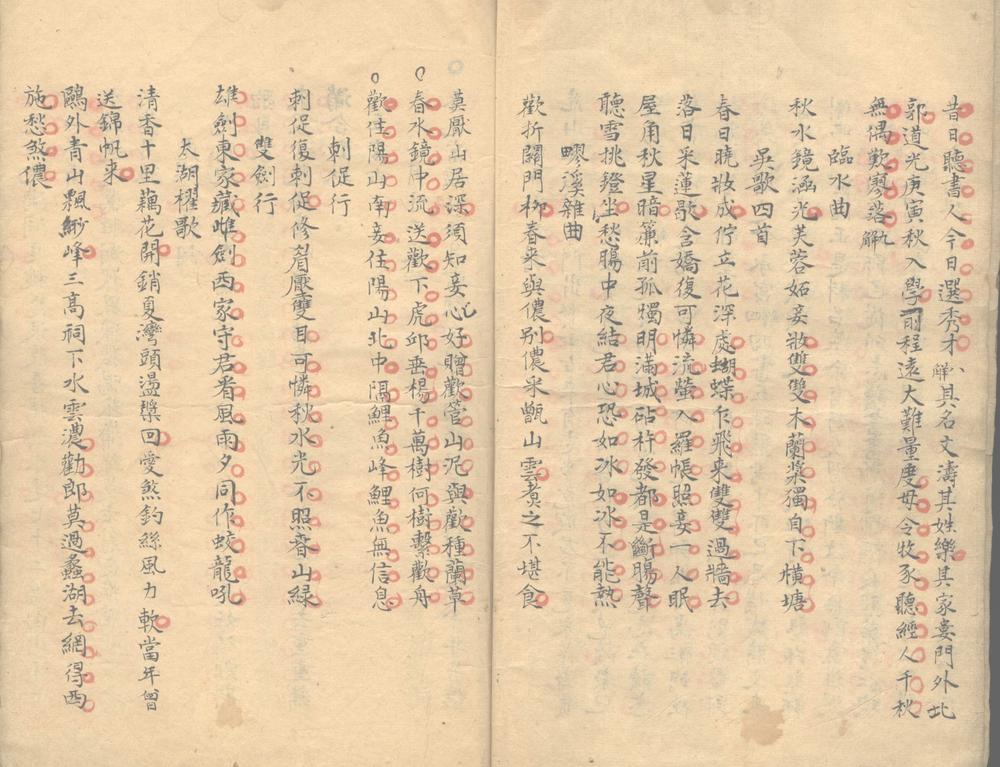 昔日聽書人今日選秀才其名文濤其姓樂其家婁門外北
郭道光庚寅秋入學前程遠大難量度毋令牧豕聽經人千秋
無偶歎寥落
臨水曲
秋水鏡涵光芙蓉妬妾妝雙雙木蘭槳獨自下橫塘
吳歌四首
春日曉妝成佇立花深處蝴蝶乍飛来雙雙過牆去
落日采蓮歇含嬌復可憐流螢入羅帳照妾一人眠
屋角秋星暗簾前孤燭明滿城砧杵發都是斷腸聲
聽雪挑鐙坐愁腸中夜結君心恐如冰如冰不能熱
䁱溪雜曲
歡折闗門柳春来與儂别儂采甑山雲煮之不堪食
莫厭山居深須知妾心好贈歡管山泥與歡種蘭草
春水鏡中流送歡下虎邱垂楊千萬樹何樹繫歡舟
歡住陽山南妾住陽山北中隔鯉魚峰鯉魚無信息
刺促行
刺促復刺促修眉壓雙目可憐秋水光不照春山綠
雙劍行
雄劍東家藏雌劍西家守君看風雨夕同作蛟龍吼
太湖櫂歌
清香十里藕花開銷夏灣頭盪槳回愛煞釣絲風力軟當年曾
送錦帆来
鷗外青山飄緲峰三高祠下水雲濃勸郎莫過蠡湖去網得西
施愁煞儂